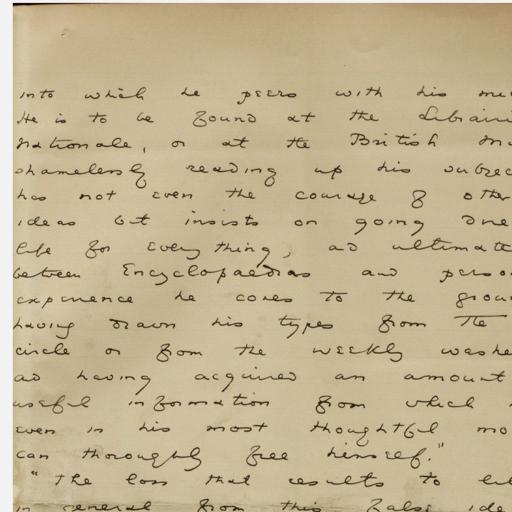 into which he peers with his
He is to be found at the Librairie
Nationale, or at the British
shamelessly reading up his subject
has not even the courage of other
ideas but insists on going
life for everything, and
between Encyclopaedias and
experience he comes to the
having drawn his types from the
circle or from the weekly
and having acquired an amount
useful information from which
even in his most thoughtful
can thoroughly free himself."
"The loss that results to
in general from this false